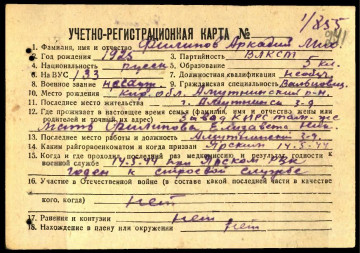 1/855
УЧЕТНО-РЕГИСТРАЦИОННАЯ КАРТА №
1. Фамилия, имя и отчество Филипов Аркадий Мих
2. Год рождения 1925 3. Партийность ВЛКСМ
4. Национальность русск 5. Образование 5 кл.
6. На ВУС 133 7. Должностная квалификация необуч
8. Военное звание 9. Гражданская специальность
10. Место рождения Кир. обл. р-н
11. Последнее место жительства
12. Где проживает в настоящее время семья (фамилия, имя и отчество жены или
родителей и точный их адрес)
мать Филипова Елизавета
13. Последнее место работы и должность
14. Каким райгорвоенкоматом и когда призван Ярским 14.5.44
15. Когда и где проходил последний раз медкомиссию и результат годности к
военной службе 14.5.44 при Ярском
годен к строевой службе
16. Участие в Отечественной войне (в составе какой последней части в качестве
кого, когда) нет
17. Ранения и контузии нет
18. Нахождение в плену или окружении нет